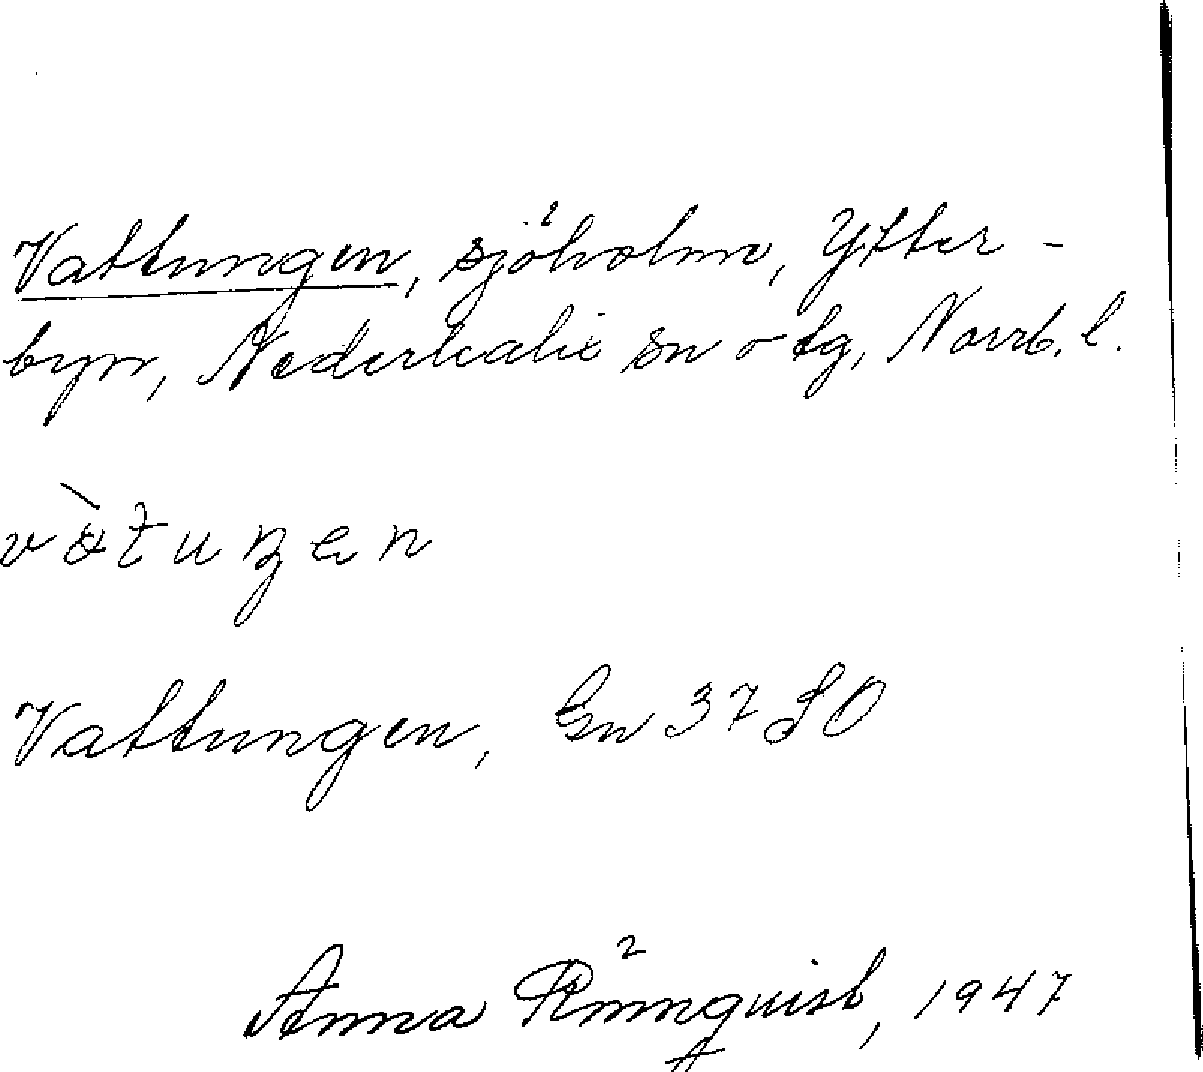 Vattungen, sjöholme, Ytter-
byn, Nederkalix sn o tg, Norrb. l.
Vattungen, Gn 37 SO
Anna Rönnquist, 1947